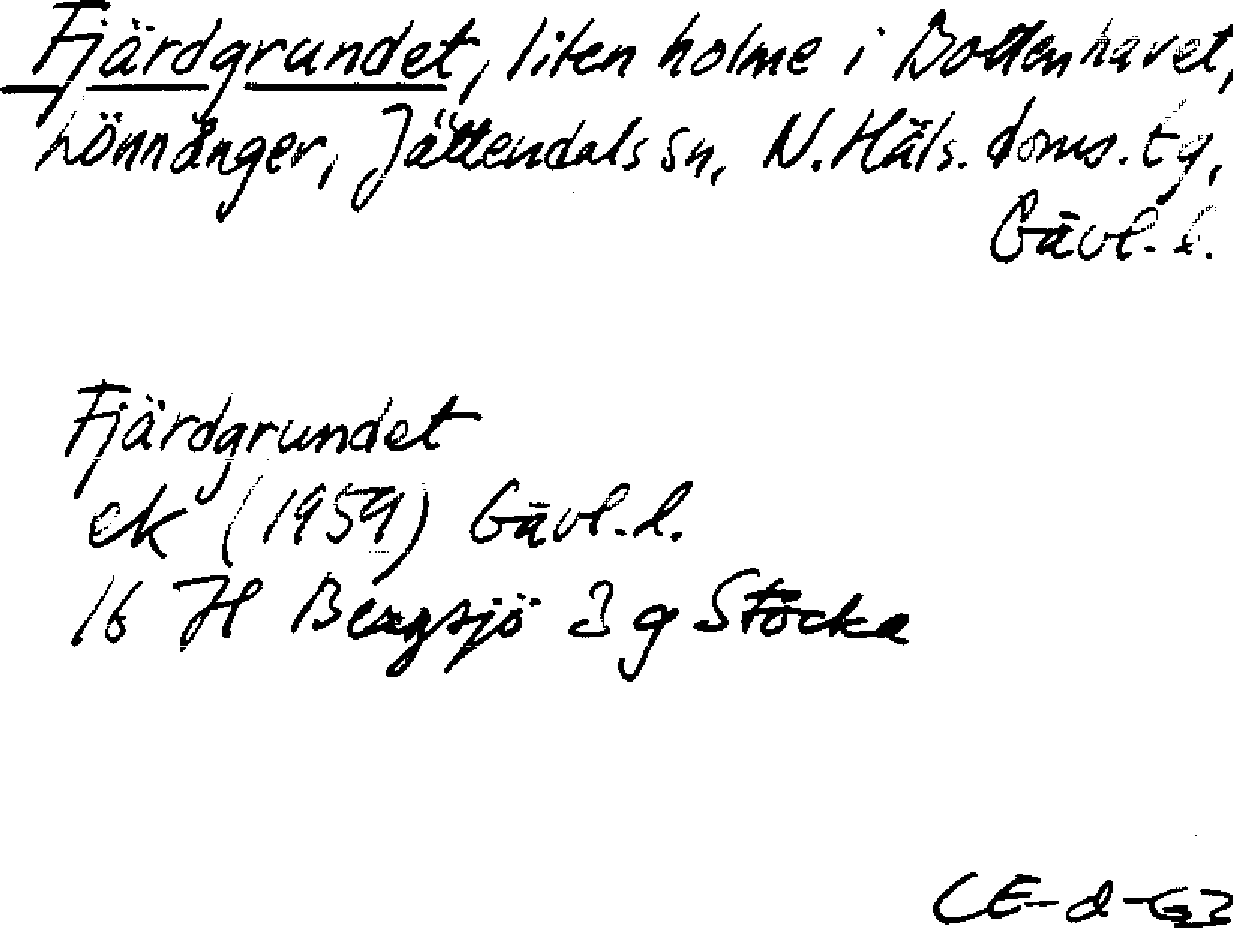 Fjärdgrundet, liten holme i Bottenhavet,
Lönnånger, Jättendals sn, N. Häls. doms. tg,
Gävl. l.
Fjärdgrundet
ek (1959) Gävl. l.
16 H Bergsjö 3 g Stocka